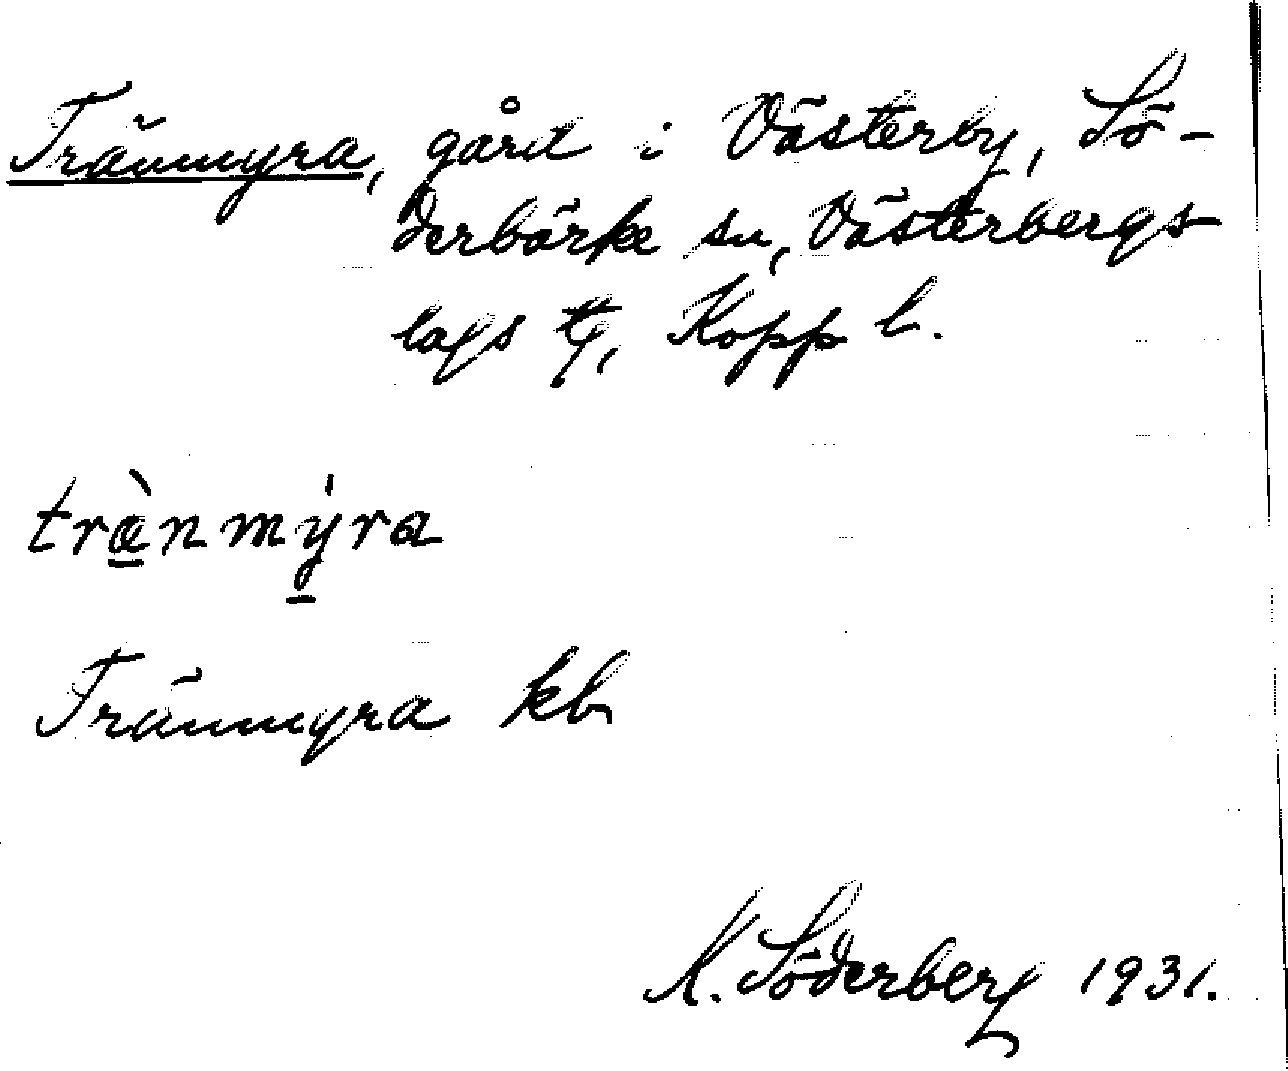 Tränmyra, gård i Västerby, Sö-
derbärke sn, Västerbergs
lags tg, Kopp l.
træ̀nmy̍ra
Tränmyra kb
K. Söderberg 1931.